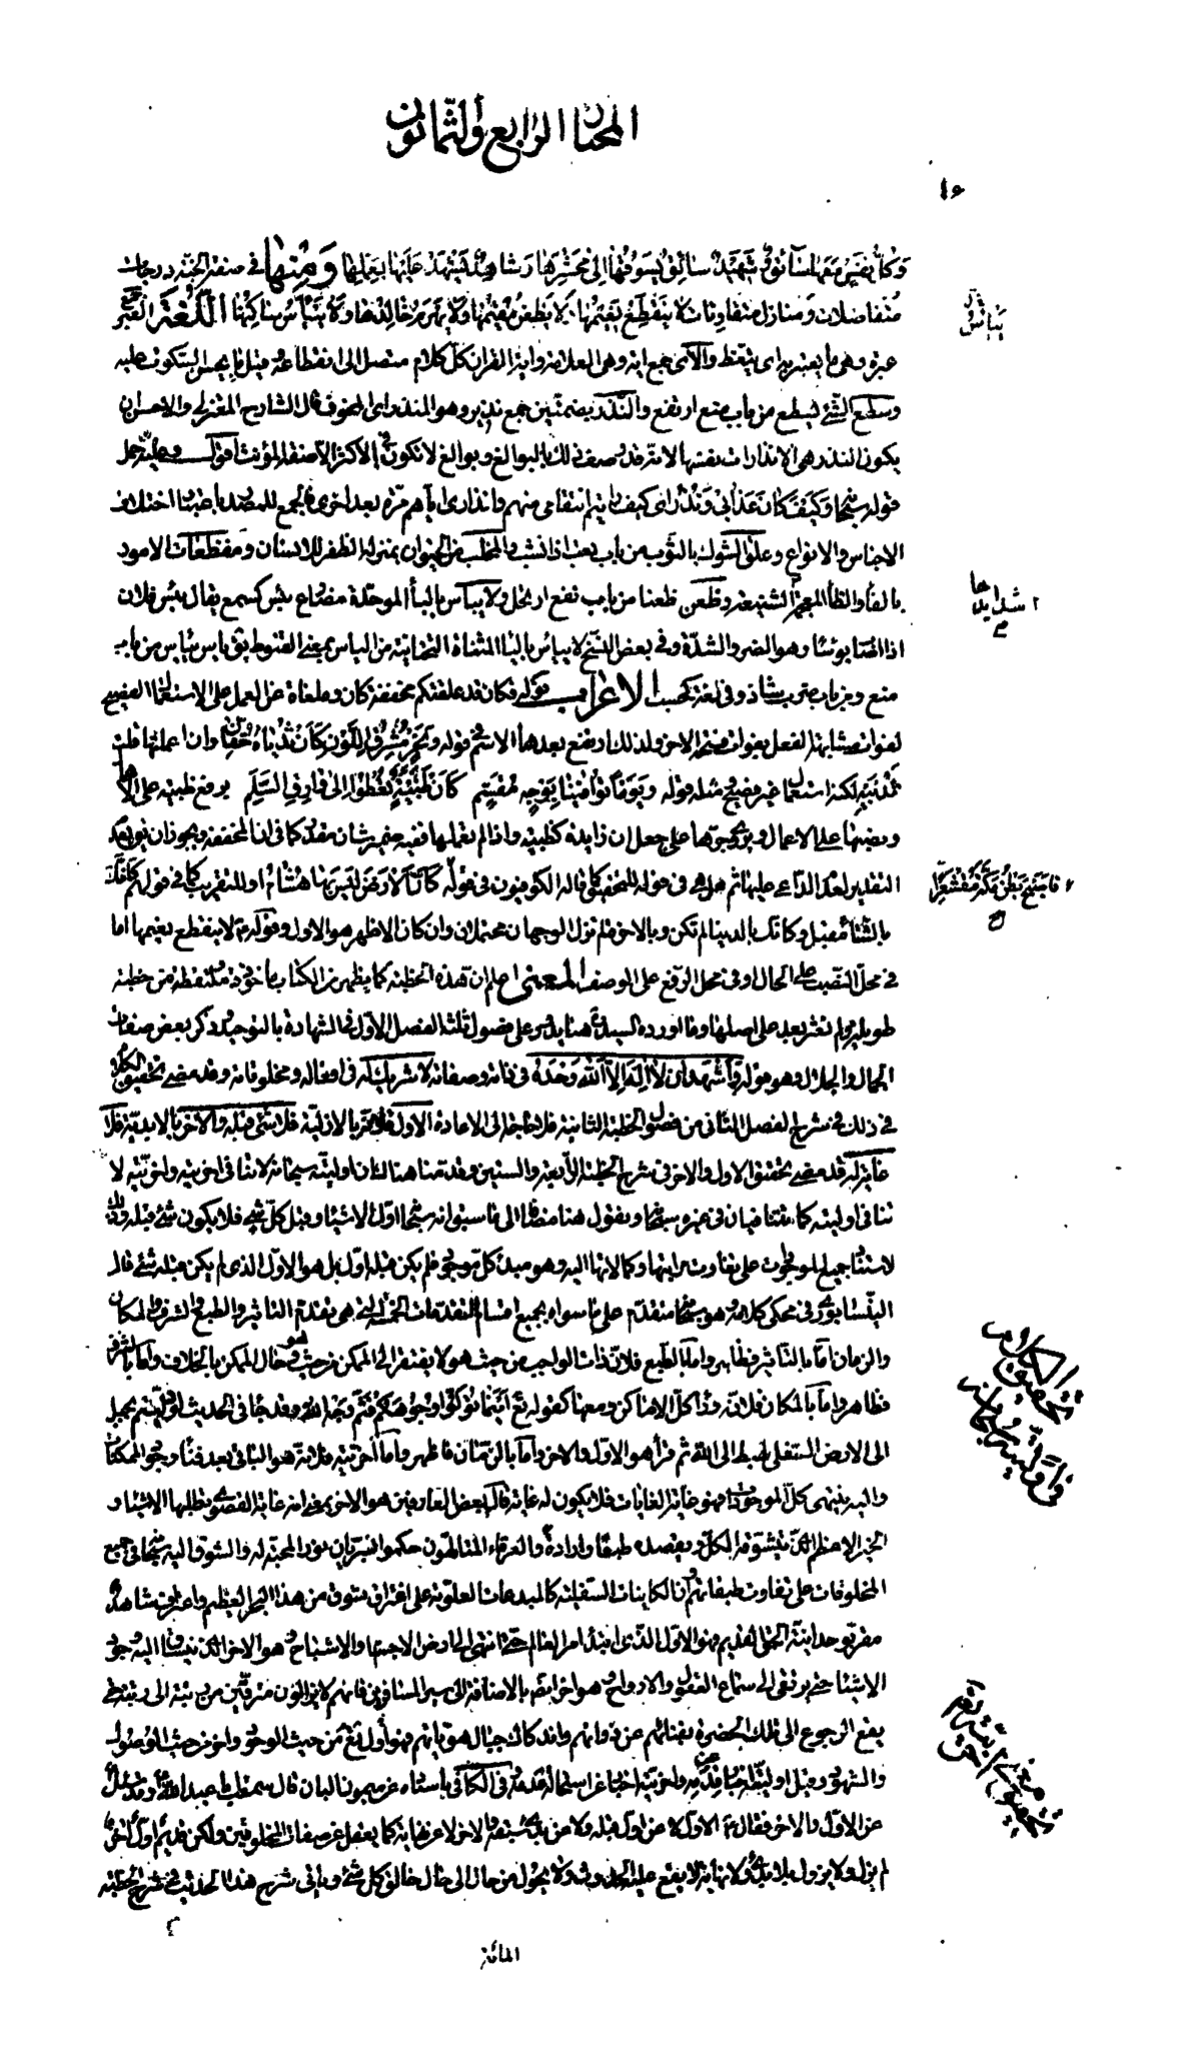 المختار الرابع والثمانون
٤٥
وَكُلُّ نَفْسٍ مَعَها سائِقٌ وَشَهِيدٌ سائِقٌ يَسُوقُها إِلى مَحْشَرِها وَشاهِدٌ يَشْهَدُ عَلَيْها بِعَمَلِها وَمِنْها في صفة الجنّة درجات
مُتفاضلات وَمنازل متفاوتات لا ينقطع نعيمُها ولا يظعن مُقيمُها ولا يهرم خالِدُها ولا يَبْأس ساكنُها اللّغة العبر جمع
عبرة وهي ما يعتبر به اى يتّعظ والآى جمع اية وهي العلامة واية القران كلّ كلام متّصل الى انقطاعه قيل ما يحسن السكوت عليه
وسطع الشّئ يسطع من باب منع ارتفع والنّذر بضمّتين جمع نذير وهو المنذر اى المخوف قال الشارح المعتزلي والاحسن ان
يكون النذر هي الانذارات نفسها لانّه قد وصف ذلك بالبوالغ وبوالغ لا تكون في الاكثر الّا صفة المؤنث اقول وعليه حمل
قوله سبحانه وَكيفَ كان عَذابي وَنُذُر اى كيف انتقامي منهم وانذارى اياهم مرّة بعد اخرى فالجمع للمصدر باعتبار اختلاف
الاجناس والانواع وعلق الشوك بالثوب من باب تعب اذا نشب والمخلب من الحيوان بمنزلة الظفر للانسان ومفظعات الامور
بالفاء والظاء المعجمة الشنيعة وظعن ظعنا من باب نفع ارتحل ولا يبأس بالباء الموحّدة مضارع بئس كسمع يقال بئس فلان
اذا اصابه بؤسا وهو الضر والشدّة وفي بعض النّسخ لا ييأس بالياء المثناة التحتانية من اليأس بمعنى القنوط يق يأس ييأس من باب
منع ومن باب ضرب شاذ وفي لغة كحسب الاعراب قوله فكان قد علقتكم مخففة كان وملغاة عن العمل على الاستعمال الفصيح
لفوات مشابهة الفعل بفوات فتحة الاخر ولذلك ارتفع بعدها الاسم في قوله ونحر مشرق اللون كَأَنْ ثدياه حقّان وان اعملتها قلت
ثدييه لكنه استعمال غير فصيح ومثله قوله ويوماً توافينا بوجه مقسّم كَأَنْ ظبية تعطو الى وارق السّلم برفع ظبية على الاهمال
ونصبها على الاعمال وبجرّها على جعل ان زايدة كظبية واذا لم تعملها ففيه ضمير شان مقدّر كما في ان المخففة ويجوز ان
التقدير لعدم الدّاعى عليها ثم هل هي في قوله للتحقيق كما قاله الكوفيون في قوله كانّ الارض ليس بها هشام او للتقريب كما في قولهم كانّك
بالشتاء مقبل وكانّك بالدنيا لم تكن وبالاخرة لم تزل الوجهان محتملان وان كان الاظهر هو الاول وقوله لا ينقطع نعيمها اما
في محلّ النصب على الحال او في محل الرّفع على الوصف المعنى اعلم ان هذه الخطبة كما يظهر من الكتاب ماخوذة وملتقطة من خطبة
طويلة ولم نعثر بعد على اصلها وما اورده السيد هنا يدور على فصول ثلثة الفصل الاوّل في الشهادة بالتوحيد وذكر بعض صفات
الجمال والجلال وهو قوله وَأَشْهَدُ أَن لا إِلهَ إِلاّ اللّه وَحدَهُ في ذاته وصفاته لا شريك له في افعاله ومخلوقاته وقد مضى تحقيق الكلام
في ذلك في شرح الفصل الثاني من فصول الخطبة الثانية فلا حاجة الى الاعادة الاوّل بالازليّة فلا شئ قبله والاخر بالابديّة فلا
غاية له قد مضى تحقيق الاول والاخر في شرح الخطبة الرّابعة والستين وقدّمنا هنالك ان اوليّته سبحانه لا تنافي اخريته واخريّته لا
تنافي اوليته كما تتنافيان في غيره سبحانه ونقول هنا مضافا الى ما سبق انه سبحانه اوّل الاشياء وقبل كلّ شئ فلا يكون شئ قبله وذلك
لاستناد جميع الموجودات على تفاوت مراتبها وكمالاتها اليه وهو مبدء كلّ موجود فلم يكن قبله اوّل بل هو الاوّل الذى لم يكن قبله شئ قال
النيشابورى في محكى كلامه وهو سبحانه متقدّم على ما سواه بجميع اقسام التقدّمات الخمسة التى هي تقدّم التاثير والطبع والشرف والمكان
والزمان امّا بالتاثير فظاهر وامّا بالطبع فلانّ ذات الواجب من حيث هو لا يفتقر الى الممكن من حيث هو وحال الممكن بالخلاف وامّا بالشرف
فظاهر وامّا بالمكان فلانّه وراء كلّ الاماكن ومعها كقوله تع أَيْنَما تُوَلُّوا وجُوهَكُمْ فَثَمَّ وَجْهُ اللّه وقد جاء في الحديث لو دليتم بحبل
الى الارض السّفلى لهبط الى اللّه ثم قرأ هو الاوّل والاخر وامّا بالزّمان فاظهر وامّا اخريّته فلانّه هو الباقى بعد فناء وجود الممكنات
واليه ينتهى كلّ الموجودات فهو غاية الغايات فلا يكون له غاية قال بعض العارفين هو الاخر بمعنى انه غاية القصوى تطلبها الاشياء و
الخير الاعظم الّذى يتشوقه الكلّ ويقصده طبعا وارادة والعرفاء المتالّهون حكموا بسريان نور المحبّة له والشوق اليه سبحانه في جميع
المخلوقات على تفاوت طبقاتهم وان الكاينات السّفلية كالمبدعات العلوية على اغتراف شوق من هذا البحر العظيم واعتراف شاهد
مقرّ بوحدانية الحقّ القديم فهو الاوّل الّذى ابتدأ امر العالم حتى انتهى الى ارض الاجسام والاشباح وهو الاخر الّذى ينساق اليه وجود
الاشياء حتى يرتقى الى سماء العقول والارواح وهو اخر ايضا بالاضافة الى سير المسافرين فانهم لا يزالون مترقّين من رتبة الى رتبة حتى
يقع الرجوع الى تلك الحضرة بفنائهم عن ذواتهم واندكاك جبال هويّاتهم فهو تع اول من حيث الوجود واخر من حيث الوصول
والشهود وقيل اوليّته اخبار عن قدمه واخريّته اخبار عن استحالة عدمه وفي الكافي باسناده عن ميمون البان قال سمعت ابا عبد اللّه وقد سئل
عن الاوّل والاخر فقال الاوّل لا عن اول قبله ولا عن بدء سبقه والاخر لا عن نهاية كما يعقل عن صفات المخلوقين ولكن قديم اوّل اخر
لم يزل ولا يزول بلا بدء ولا نهاية لا يقع عليه الحدوث ولا يحول من حال الى حال خالق كل شئ وياتى شرح هذا الحديث في شرح الخطبة
المائة
يبأس
شدايدها
م
فاصبح بطن مكّة مقشعرّا
تحقيق الكلام
في اوّليته سبحانه
معنى اخريّته